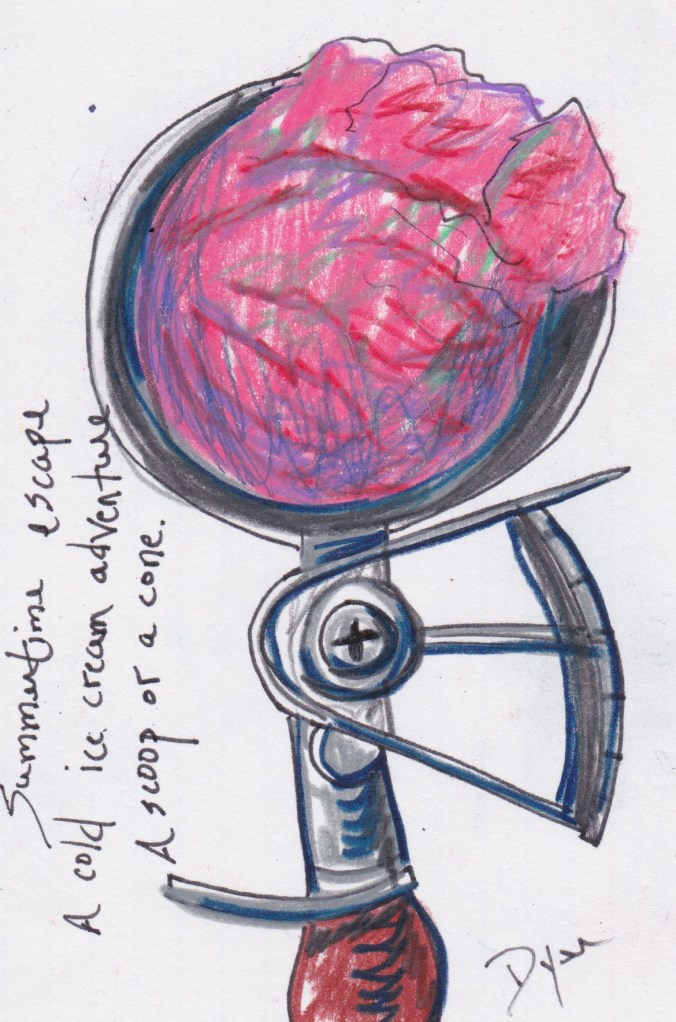 Summertime escape
A cold ice cream adventure
A scoop or a cone.
Dyer